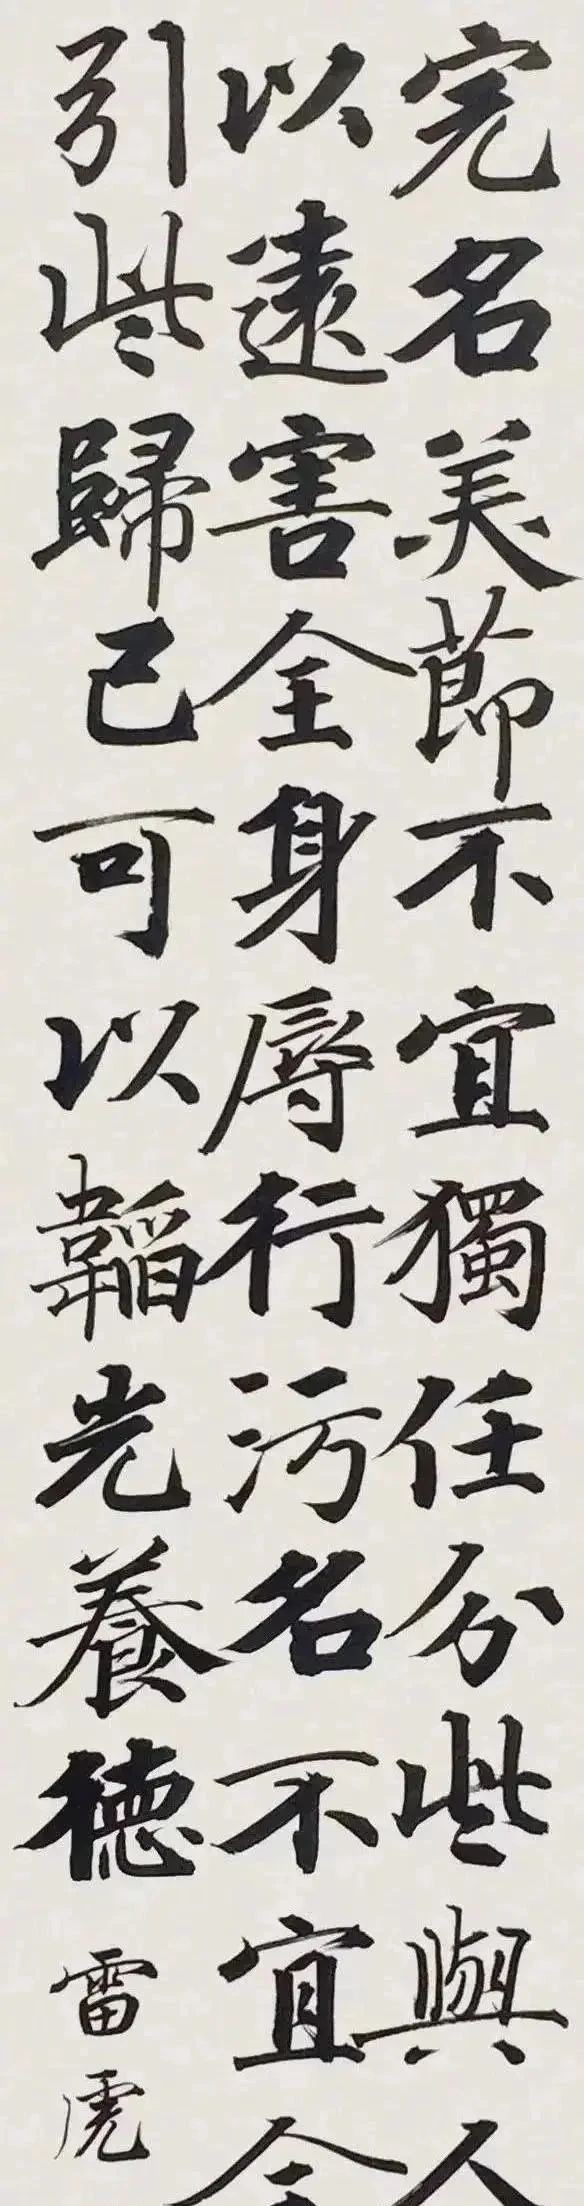 完名美節不宜獨任分些與人
以遠害全身辱行污名不宜全
引些歸己可以韜光養德
雷虎